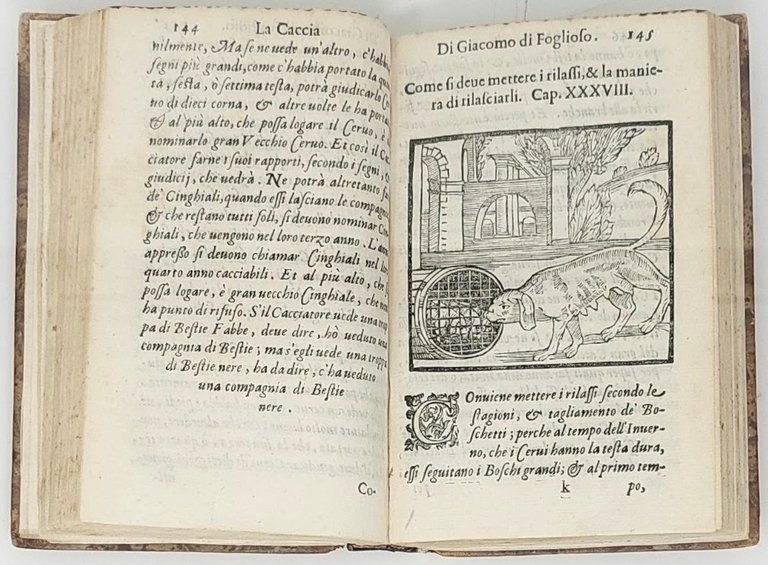 144 La Caccia
nilmente, Ma se ne vede un'altro, c'habbia
segni più grandi, come c'habbia portato la
tà, sesta, ò settima testa, potrà giudicarlo
no di dieci corna, & altre volte le ha
& al più alto, che possa logare il Ceruo, è
nominarlo gran Vecchio Ceruo. Et così il
ciatore farne i suoi rapporti, secondo i segni,
giudicij, che uedrà. Ne potrà altretanto
de' Cinghiali, quando essi lasciano le
& che restano tutti soli, si deuono nominar
ghiali, che uengono nel loro terzo anno. L'
appresso si deuono chiamar Cinghiali nel
quarto anno cacciabili. Et al più alto, che
possa logare, è gran uecchio Cinghiale, che
ha punto di rifuso. S'il Cacciatore uede una
pa di Bestie Fabbe, deue dire, hò ueduto una
compagnia di Bestie; ma s'egli uede una troppa
di Bestie nere, ha da dire, c'ha ueduto
una compagnia di Bestie
nere.
Co-
Di Giacomo di Foglioso. 145
Come si deue mettere i rilassi, & la manie-
ra di rilasciarli. Cap. XXXVIII.
COnuiene mettere i rilassi secondo le
stagioni, & tagliamento de' Bo-
schetti; perche al tempo dell'Inuer-
no, che i Cerui hanno la testa dura,
essi seguitano i Boschi grandi; & al primo tem-
k po,